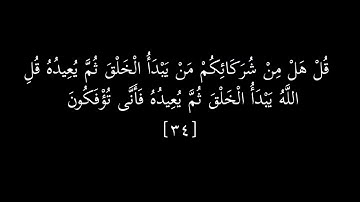 قُلْ هَلْ مِنْ شُرَكَائِكُمْ مَنْ يَبْدَأُ الْخَلْقَ ثُمَّ يُعِيدُهُ قُلِ
اللَّهُ يَبْدَأُ الْخَلْقَ ثُمَّ يُعِيدُهُ فَأَنَّى تُؤْفَكُونَ
[٣٤]